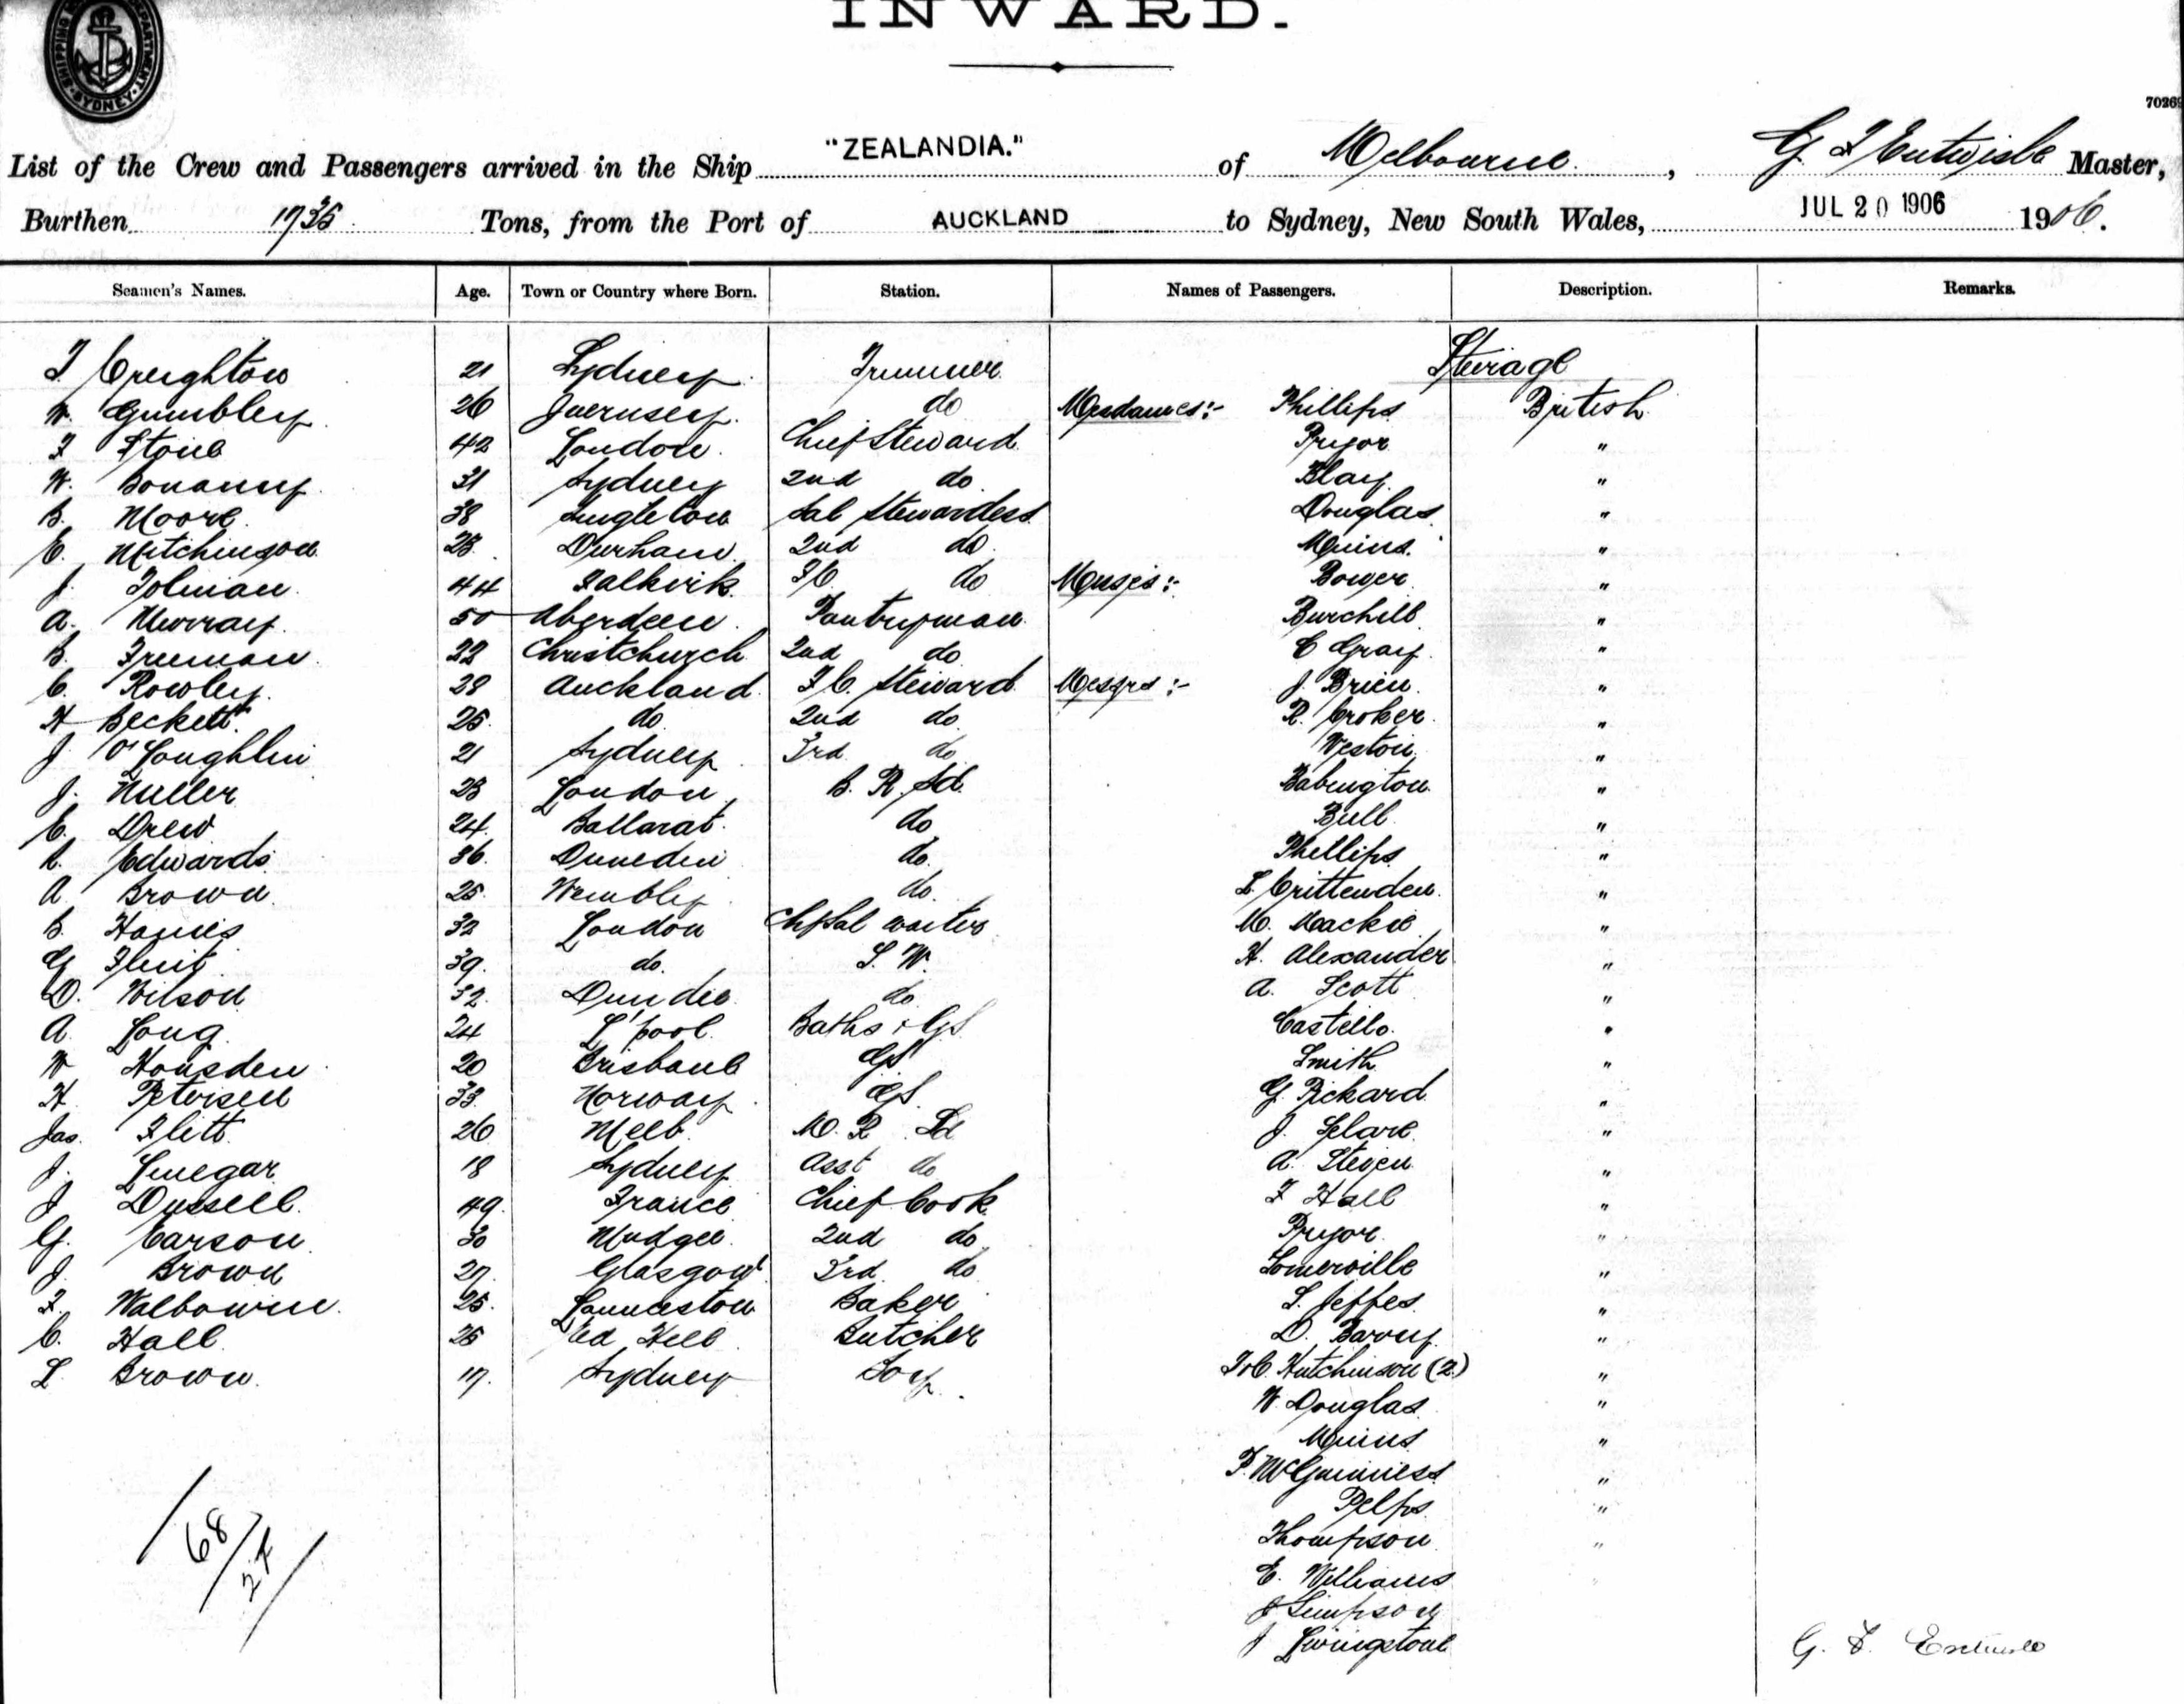 INWARD.
SHIPPING DEPARTMENT SYDNEY
7026
List of the Crew and Passengers arrived in the Ship "ZEALANDIA." of Melbourne, G F Entwisle Master,
Burthen 1735 Tons, from the Port of AUCKLAND to Sydney, New South Wales, JUL 20 1906 1906.
Seamen's Names. Age. Town or Country where Born. Station. Names of Passengers. Description. Remarks.
Steirage
Creighton 21 Sydney Trimmer
W. Gumbley 26 Guernsey do Mesdames:- Phillips British
F Stone 42 London Chief Steward Pryor "
W. Bonanny 31 Sydney 2nd do Blay "
B. Moore 38 Singleton Sal Stewardess Douglas "
E. Mitchinson 28 Durham 2nd do "
J. Tolman 44 Falkirk F/C do Misses:- Bower "
A. Murray 50 Aberdeen Pantryman Burchill "
B. Freeman 22 Christchurch 2nd do C Gray "
C. Rowley 28 Auckland F/C. Steward Messrs:- J. Brien "
H Beckett 25 do 2nd do R. Croker "
J O'Loughlin 21 Sydney 3rd do Weston "
J. 28 London B. R. Sd. Babington "
E. Drew 24 Ballarat do Bull "
Edwards 36 Dunedin do Phillips "
A Brown 25 Wembley do L Crittenden "
B. London Ch Sal waiter M. Mackie "
G 39 do. S. W. H. Alexander "
D. Wilson 32 Dundee do A. Scott "
A. Long 24 L'pool Baths & GS Castello "
W Housden 20 Brisbane GS Smith "
H. Petersen 33 Norway GS G. Pickard "
Jas. Flett 26 Melb. M. R Sd J. "
J. Linegar 18 Sydney Asst do A. Steven "
J Dussell 49 France Chief Cook F Hall "
G. Carson 30 Mudgee 2nd do Pryor "
J. Brown 27 Glasgow 3rd do Somerville "
F. Walbourne 25 Launceston Baker S. Jeffes "
C. Hall 25 Red Hill Butcher D. Barry "
L Brown 17 Sydney Boy Hutchinson (2) "
W. Douglas "
"
McGuinness "
"
Thompson "
E. Williams
J Simpson
J Livingstone
68/27
G. F. Entwisle